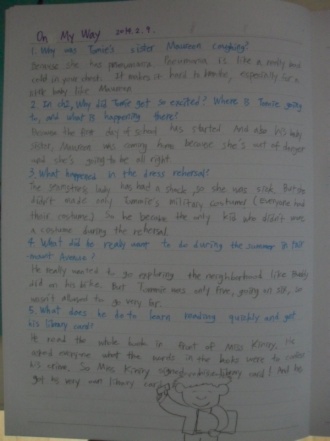 On My Way 2014. 2. 9.
1. Why was Tomie's sister Maureen coughing?
Because she has pneumonia. Pneumonia is like a really bad
cold in your chest. It makes it hard to breathe, especially for a
little baby like Maureen.
2. In ch2, Why did Tomie get so excited? Where is Tomie going
to, and what is happening there?
Because the first day of school has started. And also his baby
sister, Maureen was coming home because she's out of danger
and she's going to be all right.
3. What happened in the dress rehersal?
The seamstress lady has had a shock, so she was sick. But she
didn't made only Tommie's military costume! (everyone had
their costume) So he became the only kid who didn't wore
a costume during the rehersal.
4. What did he really want to do during the summer in
Avenue?
He really wanted to go exploring the neighborhood like Buddy
did on his bike. But Tommie was only five, going on six, so
wasn't allowed to go very far.
5. What does he do to learn reading quickly and get
his library card?
He read the whole book in front of Miss Kinsey. He
asked everyone what the words in the books were to
So Miss Kinsey library card! And he
got his very own library card